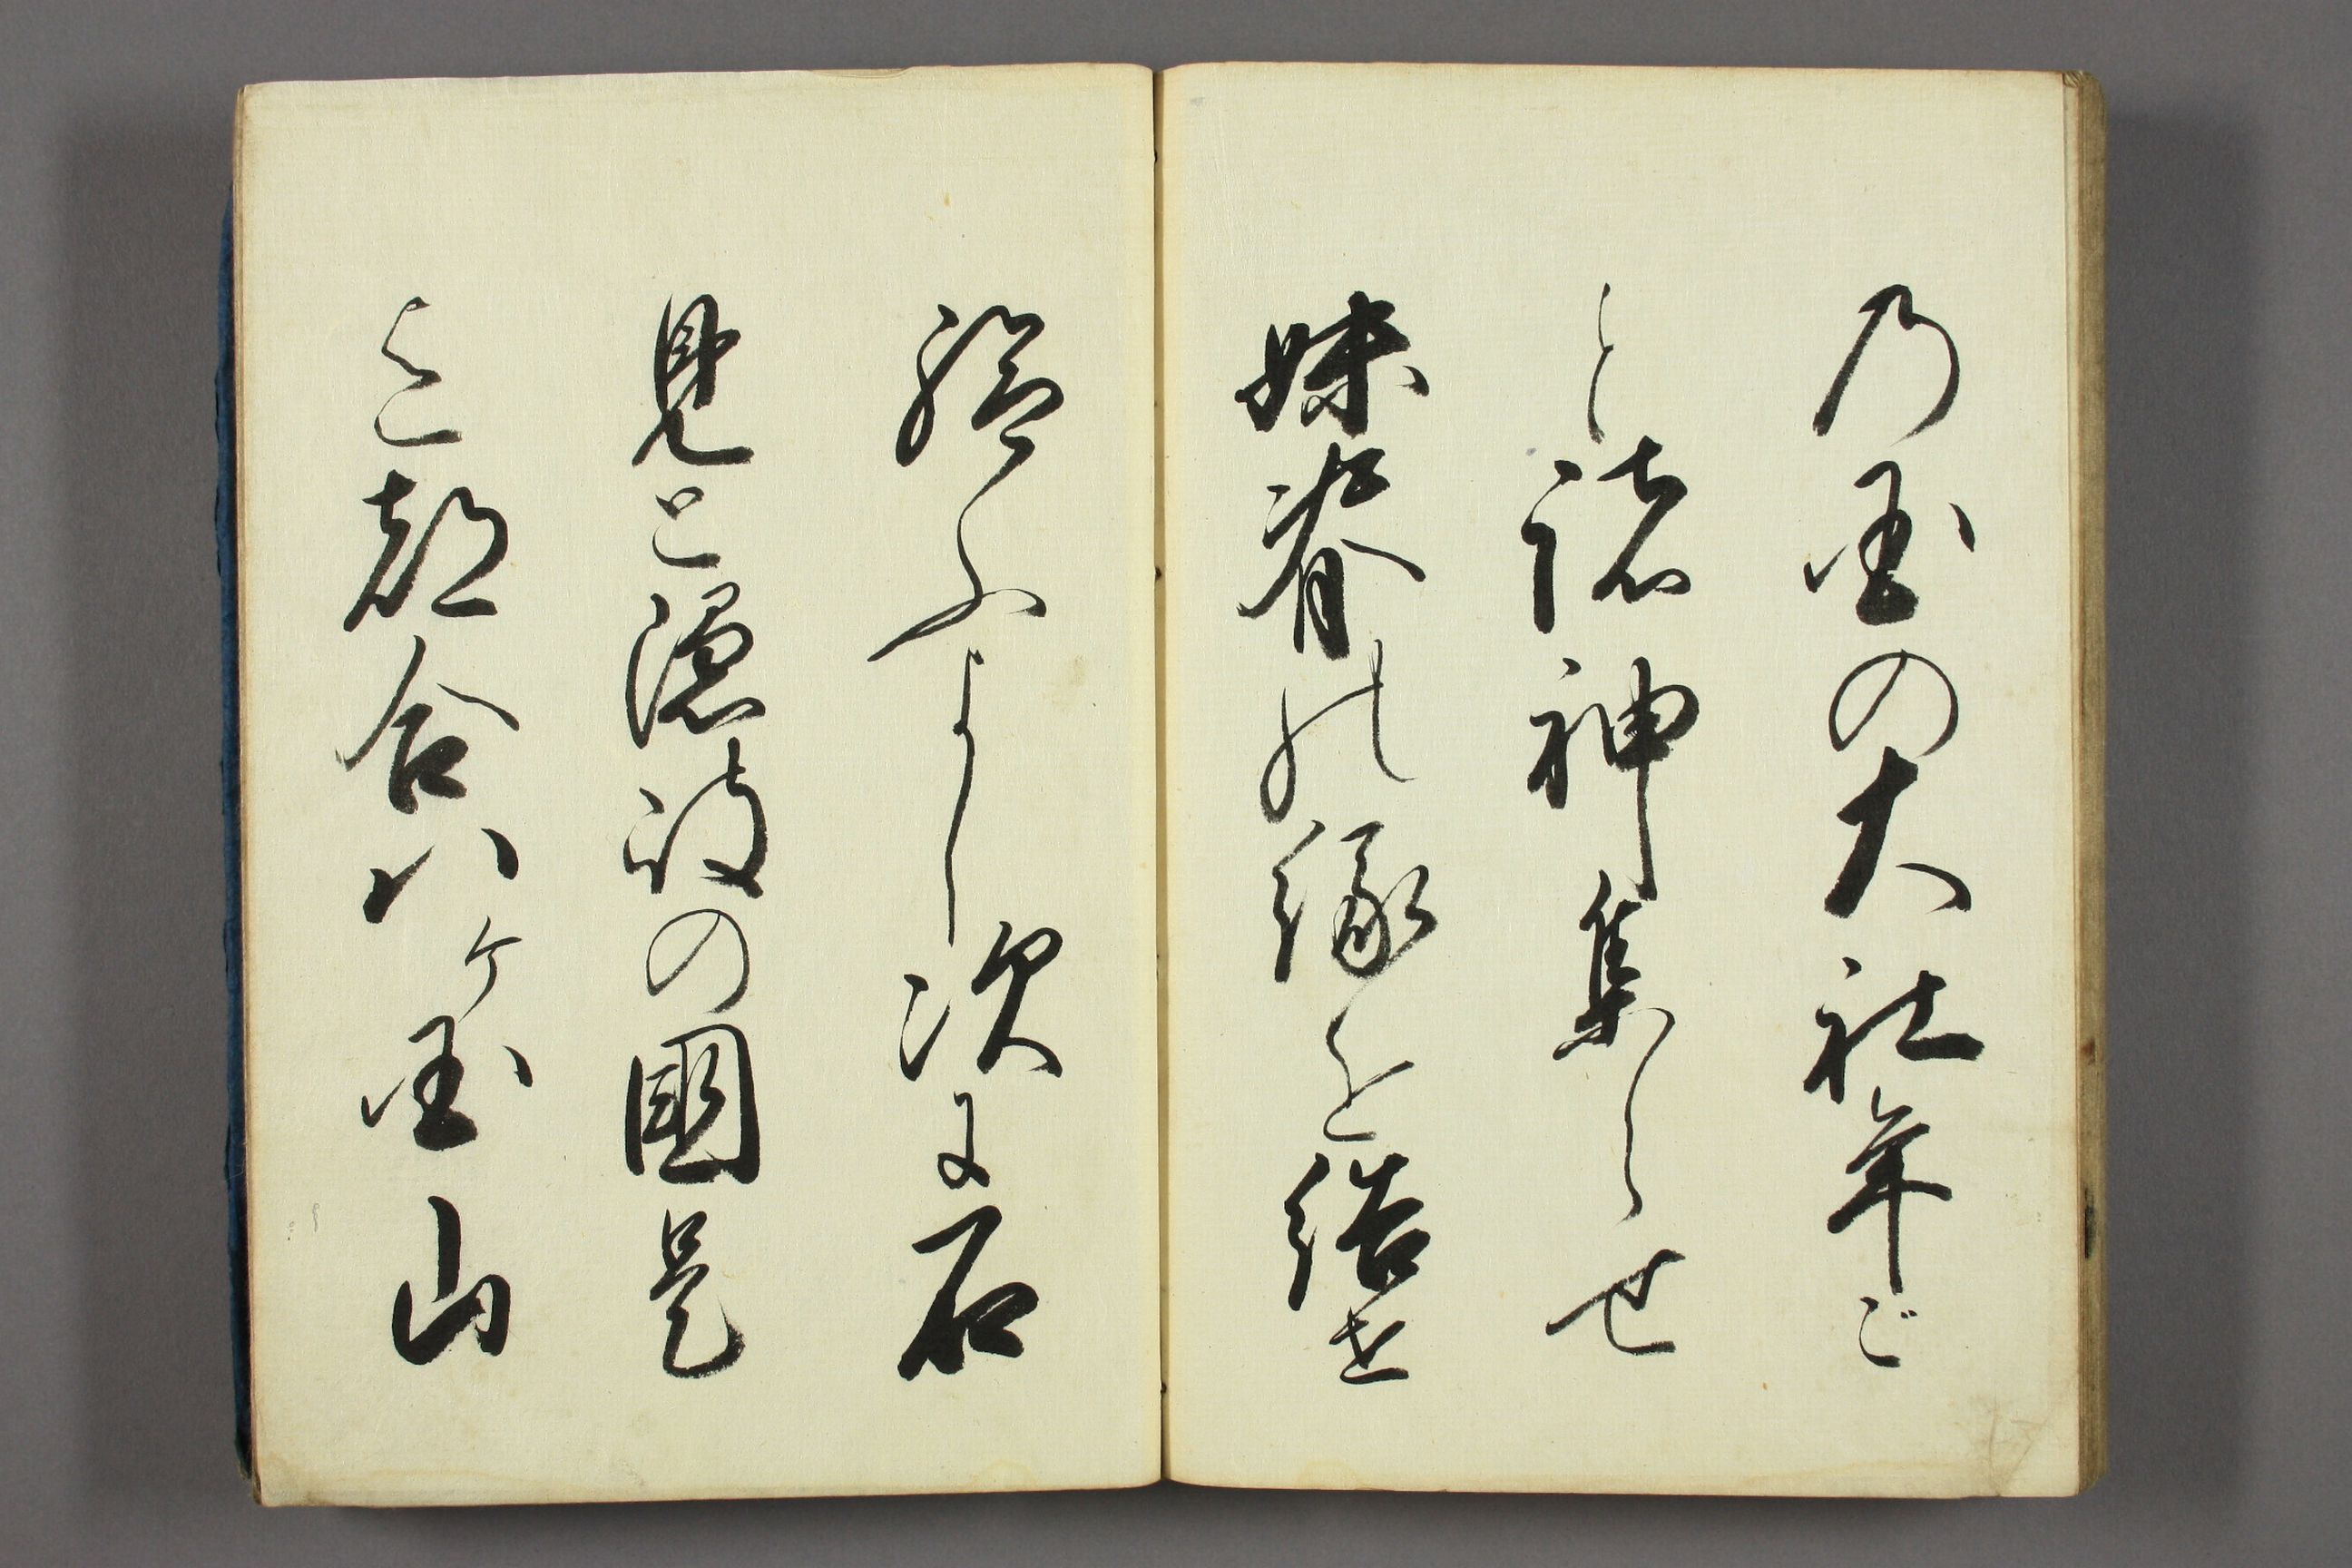 乃国の大社年ご
と諸神集らせ
妹脊の縁を結せ
給ふよし次に石
見と隠岐の國是
を都合八ヶ国山